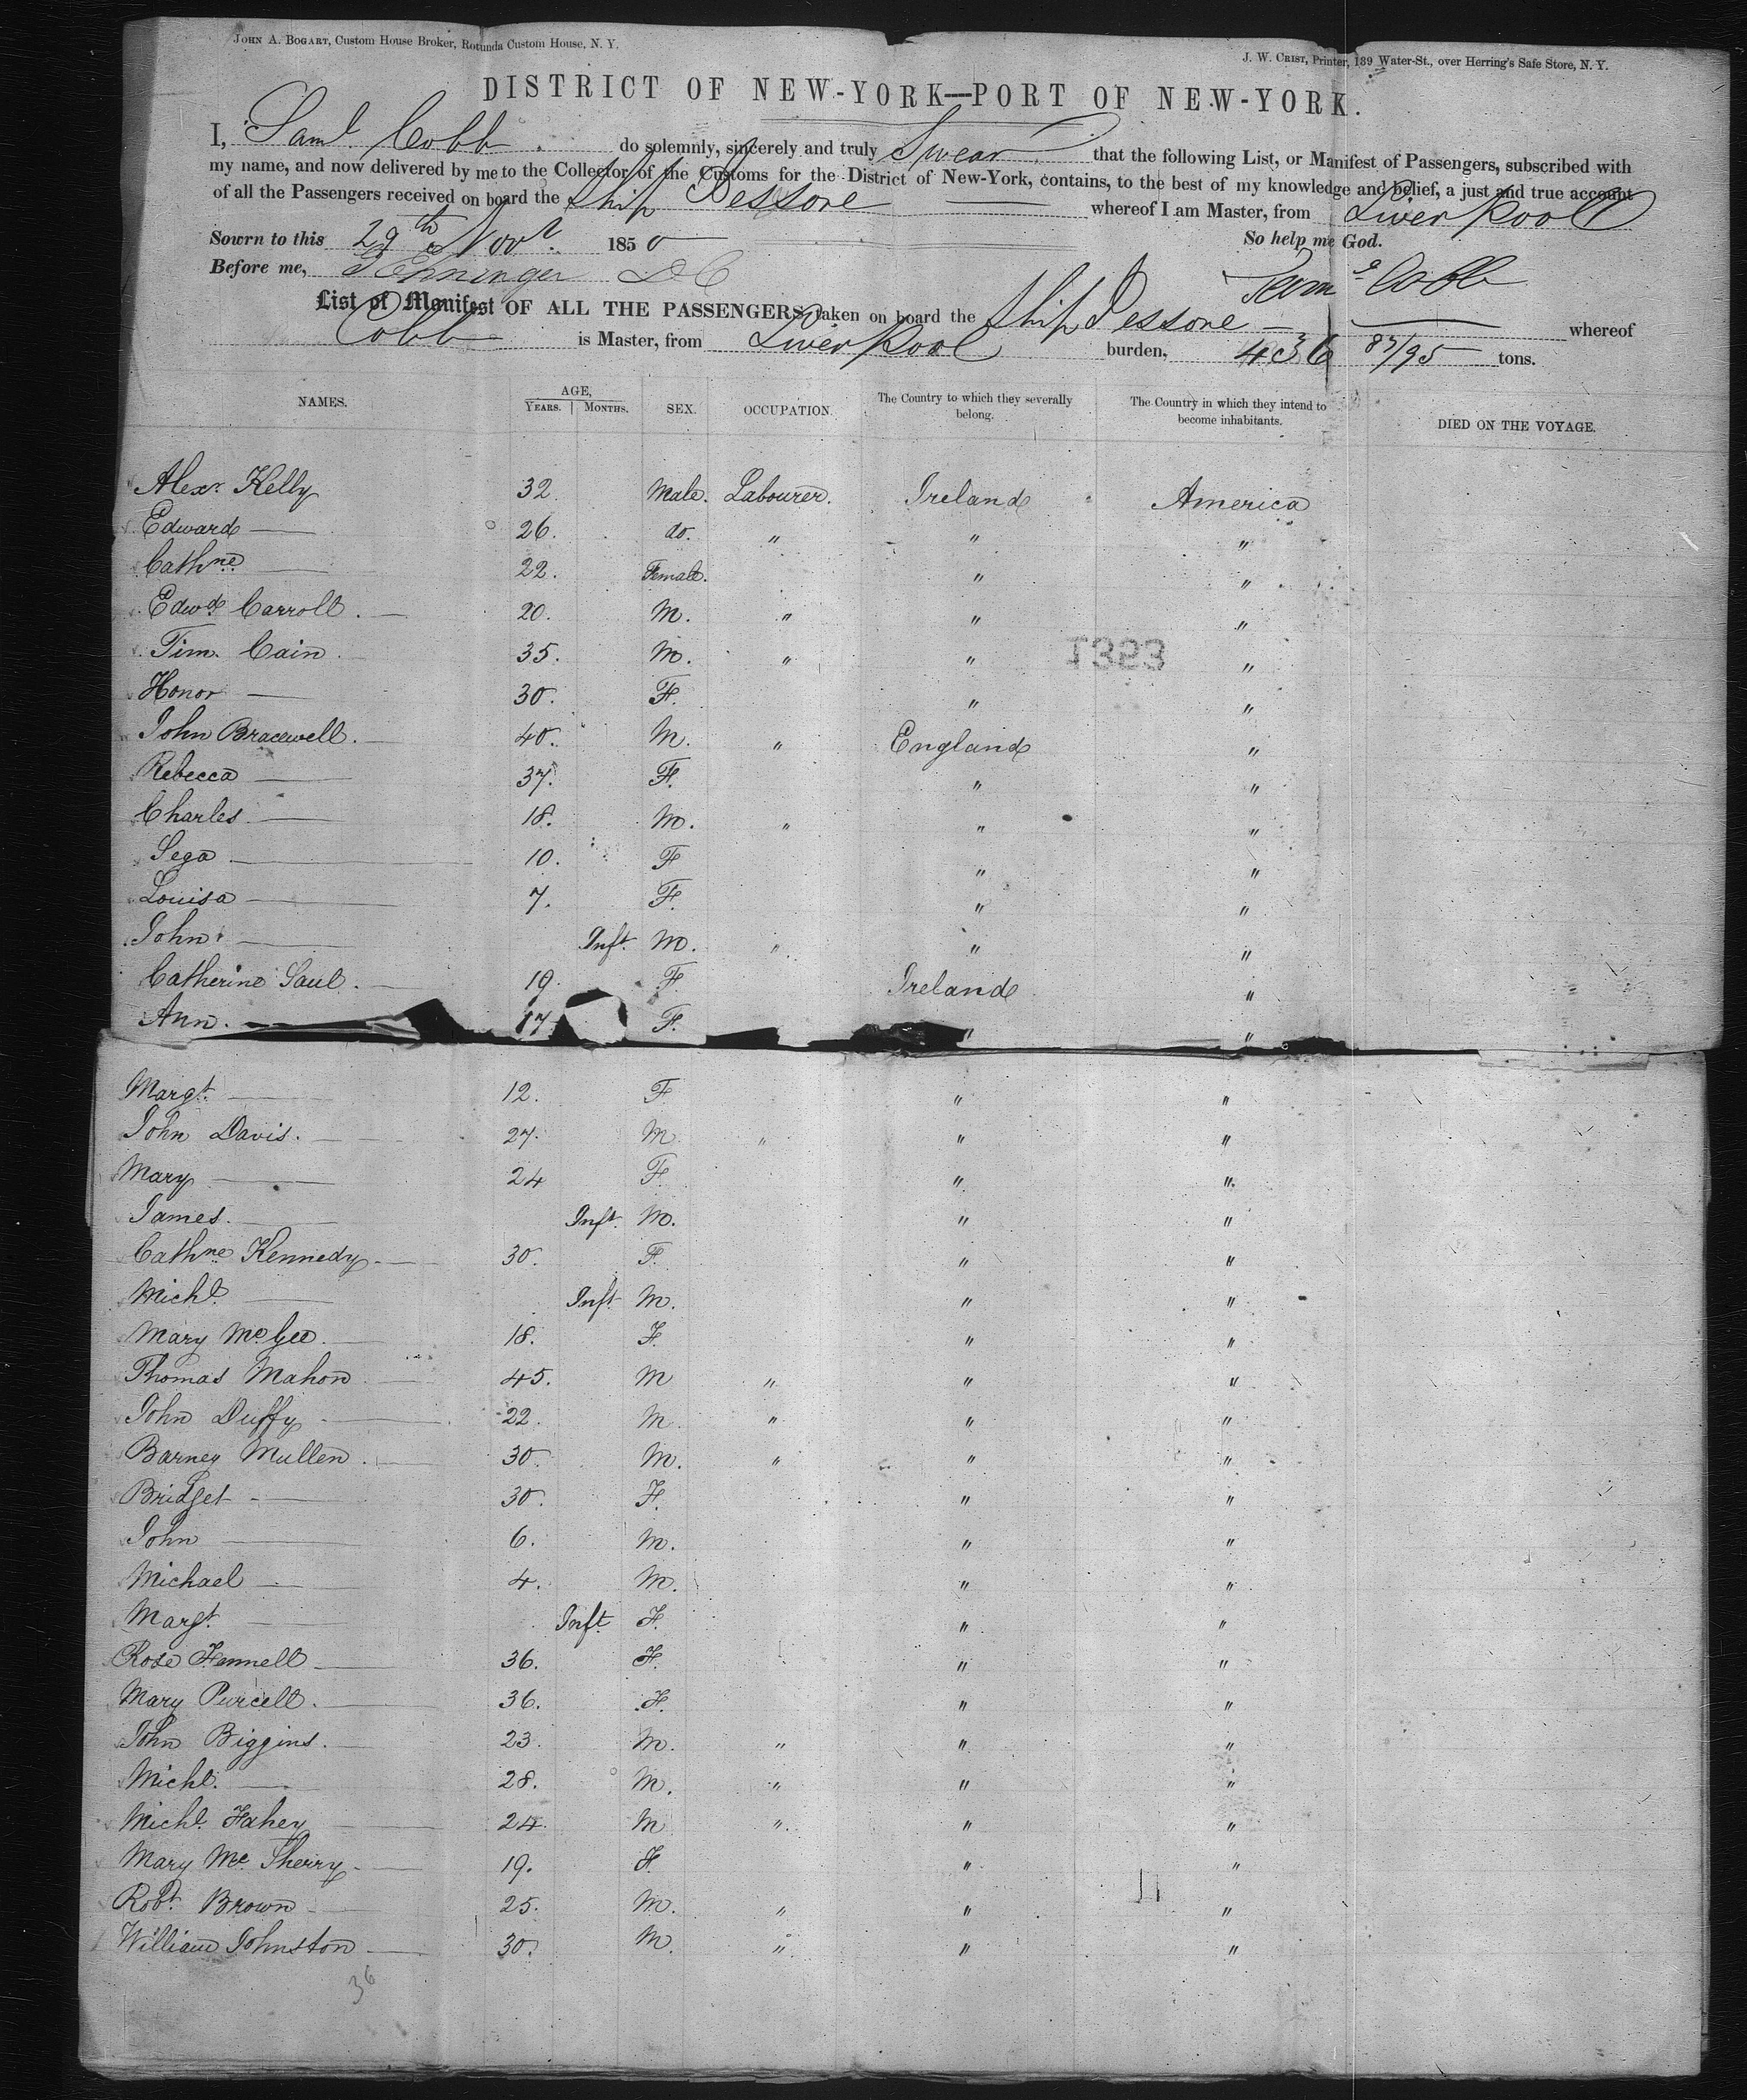 JOHN A. BOGART, Custom House Broker, Rotunda Custom House, N. Y.
J. W. CRIST, Printer, 139 Water-St., over Herring's Safe Store, N. Y.
DISTRICT OF NEW-YORK—PORT OF NEW-YORK.
I, Saml. Cobb. do solemnly, sincerely and truly Swear that the following List, or Manifest of Passengers, subscribed with
my name, and now delivered by me to the Collector of the Customs for the District of New-York, contains, to the best of my knowledge and belief, a just and true account
of all the Passengers received on board the Ship Dessore whereof I am Master, from Liverpool
Sowrn to this 29th Novr. 1850 So help me God.
Before me, DC Saml Cobb
List of Manifest OF ALL THE PASSENGERS taken on board the Ship Dessore whereof
Cobb is Master, from Liverpool burden, 436 87/95 tons.
NAMES. AGE, YEARS. MONTHS. SEX. OCCUPATION. The Country to which they severally belong. The Country in which they intend to become inhabitants. DIED ON THE VOYAGE.
Alexr. Kelly 32 Male. Labourer. Ireland America
Edward — 26. do. " " "
Cathne — 22. Female. " "
Edwd Carroll. — 20. M. " " "
Tim. Cain 35. M. " " "
1383
Honor — 30. F. " "
John Bracewell. — 40. M. " England "
Rebecca — 37. F. " "
Charles — 18. M. " " "
Sega — 10. F " "
Louisa — 7. F. " "
John — Inft. M. " " "
Catherine Saul. — 19. F. Ireland "
Ann. — 17 F. " "
Margt. — 12. F. " "
John Davis. — 27. M " " "
Mary — 24 F. " "
James. — Inft. M. " "
Cathne Kennedy — 30. F. " "
Michl. — Inft M. " "
Mary McGee. — 18. F. " "
Thomas Mahon — 45. M " " "
John Duffy — 22. M " " "
Barney Mullen. — 30. M. " " "
Bridget — 30. F. " "
John — 6. M. " "
Michael — 4. M. " "
Margt. — Inft F. " "
Rose Fennell — 36. F. " "
Mary Purcell. — 36. F. " "
John Biggins. — 23. M. " " "
Michl. — 28. M. " " "
Michl. Fahey — 24. M " " "
Mary Mc Sherry — 19. F. " "
Robt. Brown — 25. M. " " "
William Johnston — 30. M. " " "
36